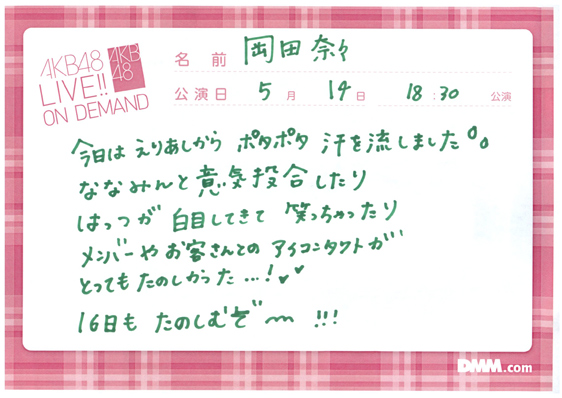 AKB48
LIVE!!
ON DEMAND
AKB
48
名 前 岡田奈々
公演日 5月 14日 18:30 公演
今日は えりあしから ポタポタ 汗を流しました
ななみんと意気投合したり
はっつが 白目してきて 笑っちゃったり
メンバーや お客さんとの アイコンタクトが
とっても たのしかった...!
16日も たのしむぞ〜 !!!
DMM.com